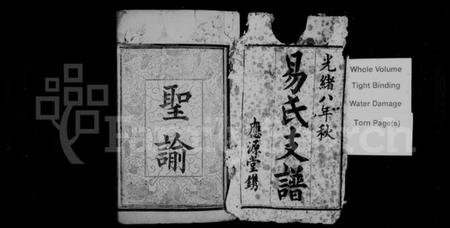 光緒八年秋
易氏支譜
應源堂鐫
聖諭
Whole Volume
Tight Binding
Water Damage
Torn Page(s)